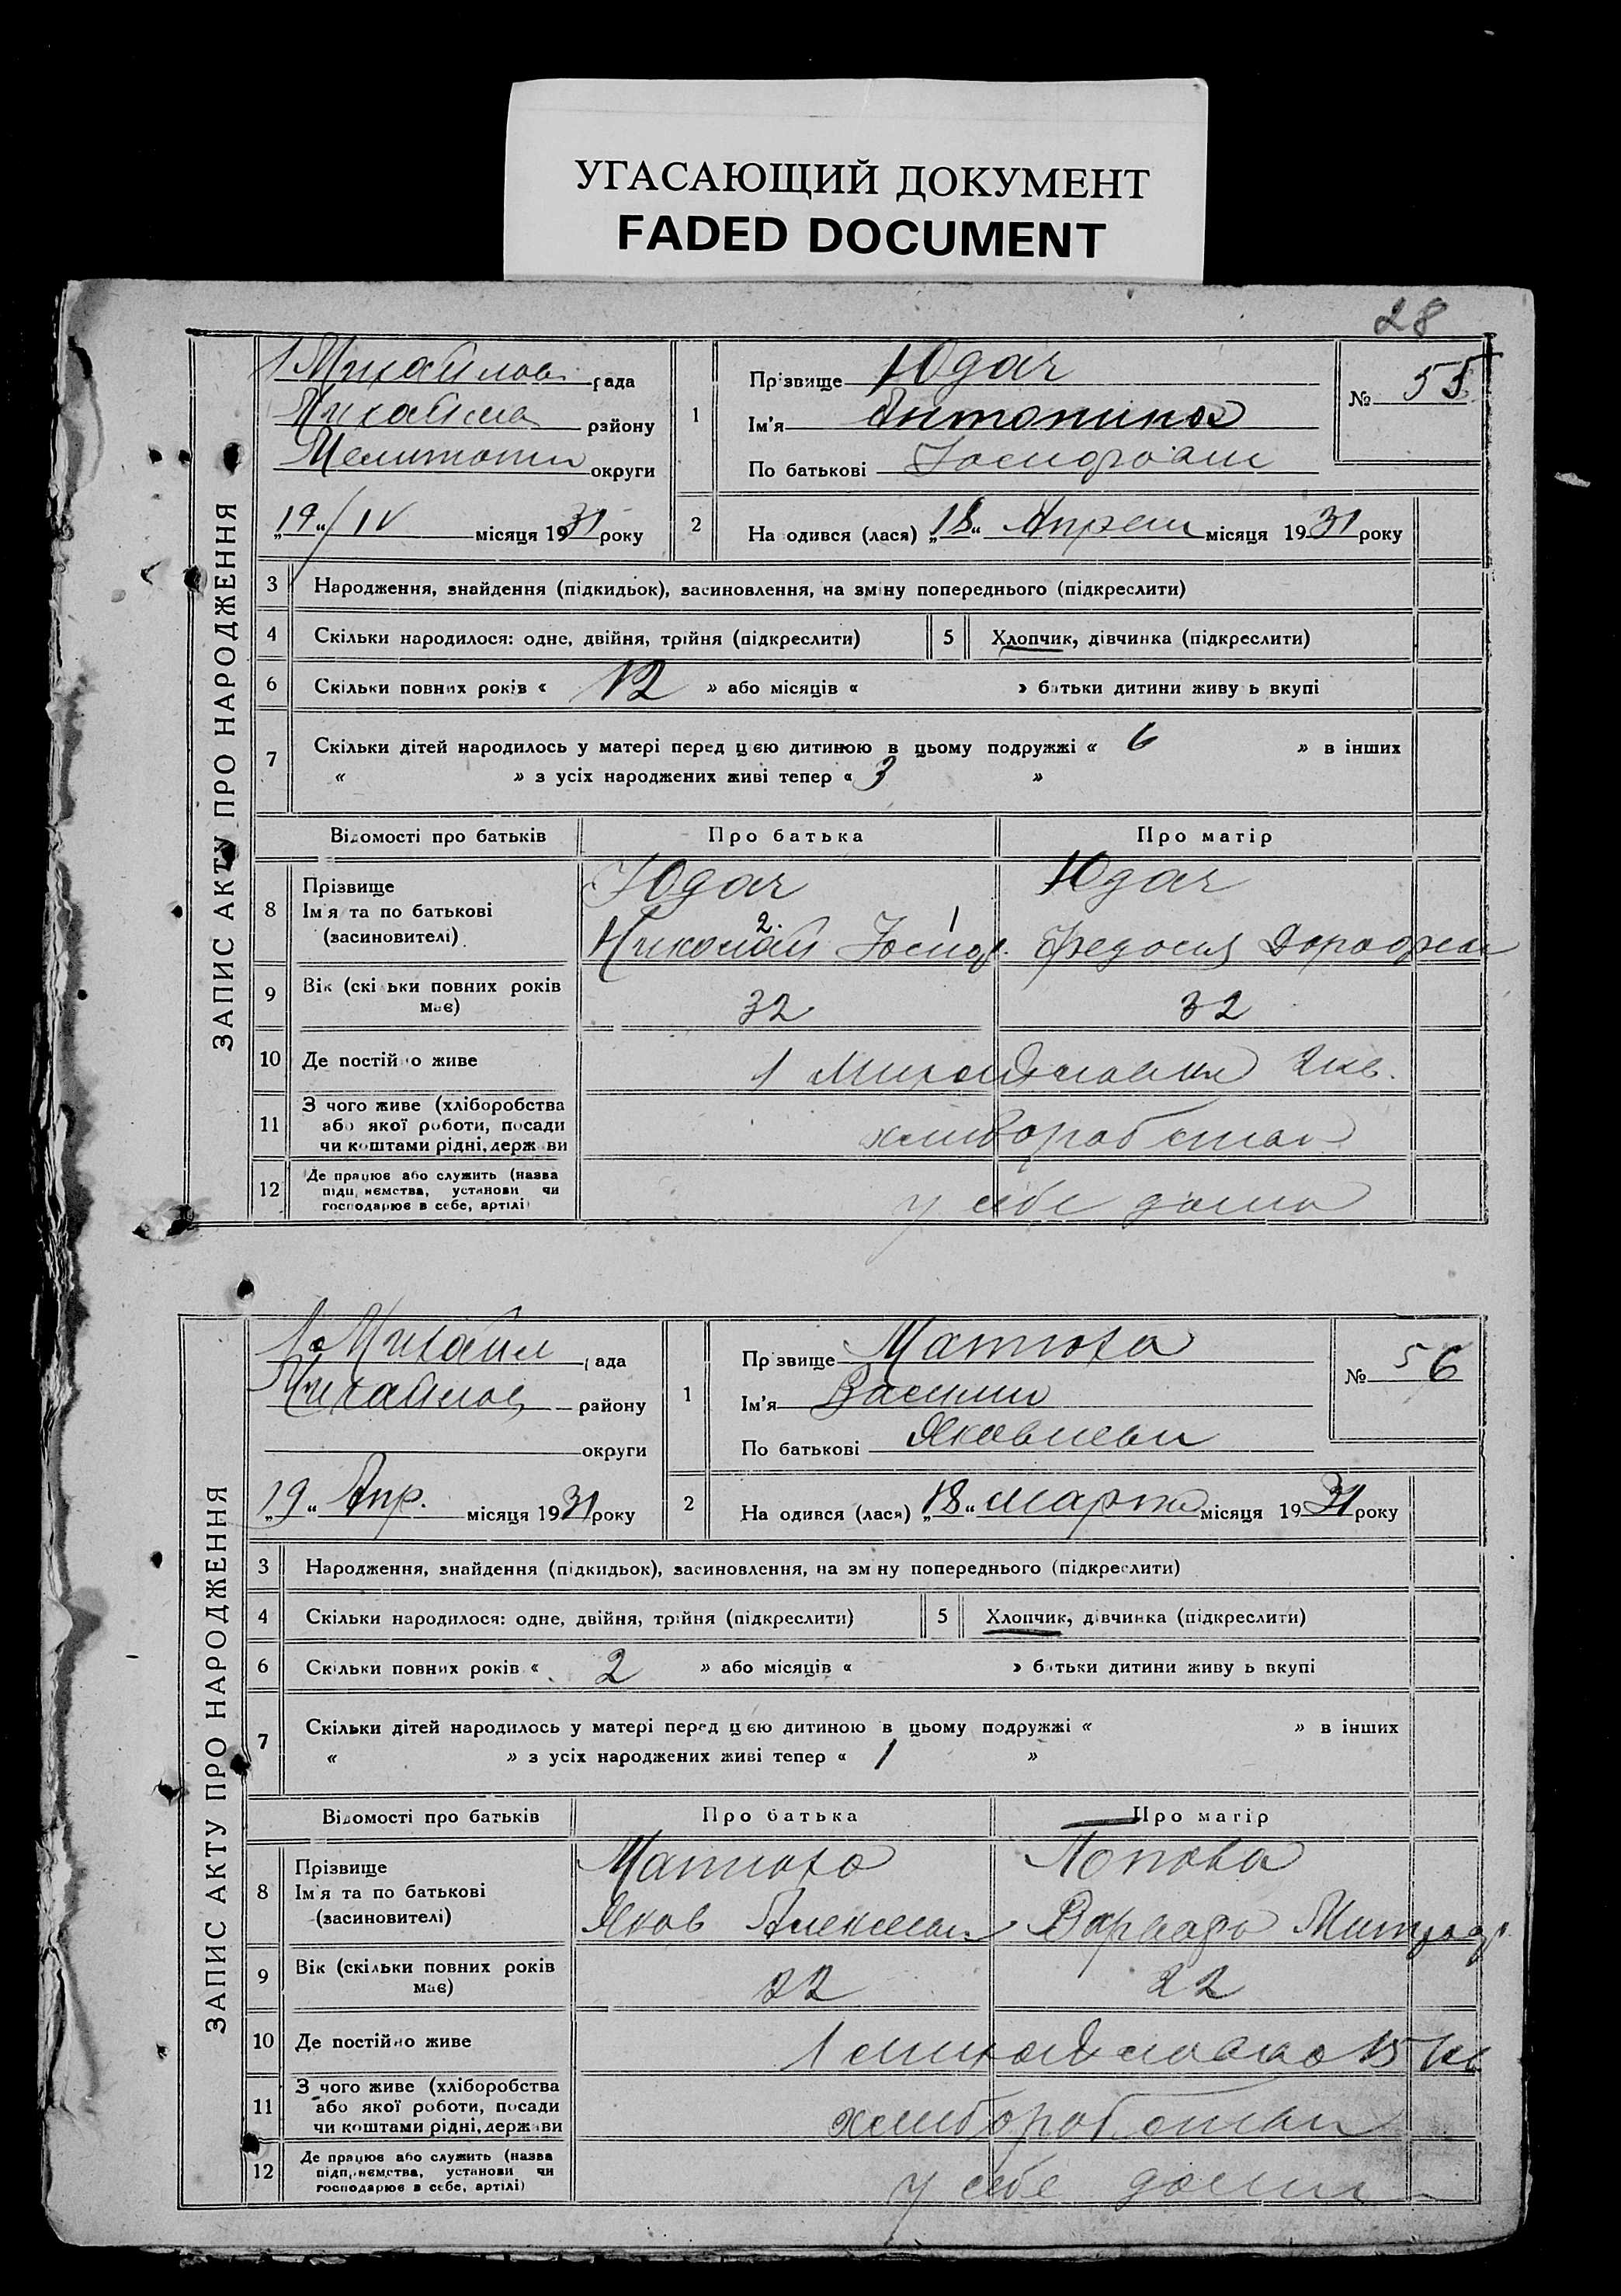 УГАСАЮЩИЙ ДОКУМЕНТ
FADED DOCUMENT
28
ЗАПИС АКТУ ПРО НАРОДЖЕННЯ
1 Михайлов рада
Михайлов району
Мелитоп округи
„19“/IV місяця 1931 року
1
Прізвище Юдач
Ім'я Антонина
По батькові Иосифович
№ 55
2
Народився (лася) „18“ Апреля місяця 1931 року
3 Народження, знайдення (підкидьок), засиновлення, на зміну попереднього (підкреслити)
4 Скільки народилося: одне, двійня, трійня (підкреслити) 5 Хлопчик, дівчинка (підкреслити)
6 Скільки повних років « 12 » або місяців « » батьки дитини живуть вкупі
7 Скільки дітей народилось у матері перед цією дитиною в цьому подружжі « 6 » в інших
« » з усіх народжених живі тепер « 3 »
Відомості про батьків Про батька Про матір
8 Прізвище
Ім'я та по батькові
(засиновителі)
Юдач Юдач
2. 1
Николай Иосиф. Федосия Дорофеев
9 Вік (скільки повних років має) 32 32
10 Де постійно живе 1 Михайловка 2 кв.
11 З чого живе (хліборобства
або якої роботи, посади
чи коштами рідні, держави
хлиборобство
12 Де працює або служить (назва
підприємства, установи чи
господарює в себе, артілі)
у себе дома
ЗАПИС АКТУ ПРО НАРОДЖЕННЯ
1 Михайл рада
Михайлов району
округи
„19“ Апр. місяця 1931 року
1
Прізвище Матюха
Ім'я Василий
По батькові Яковлевич
№ 56
2
Народився (лася) „18“ марта місяця 1931 року
3 Народження, знайдення (підкидьок), засиновлення, на зміну попереднього (підкреслити)
4 Скільки народилося: одне, двійня, трійня (підкреслити) 5 Хлопчик, дівчинка (підкреслити)
6 Скільки повних років « 2 » або місяців « » батьки дитини живуть вкупі
7 Скільки дітей народилось у матері перед цією дитиною в цьому подружжі « » в інших
« » з усіх народжених живі тепер « 1 »
Відомості про батьків Про батька Про матір
8 Прізвище
Ім'я та по батькові
(засиновителі)
Матюха Попова
Яков Алексеев Варвара Митроф
9 Вік (скільки повних років має) 22 22
10 Де постійно живе 1 Михайловка 15 кв
11 З чого живе (хліборобства
або якої роботи, посади
чи коштами рідні, держави
хлиборобством
12 Де працює або служить (назва
підприємства, установи чи
господарює в себе, артілі)
у себе дома